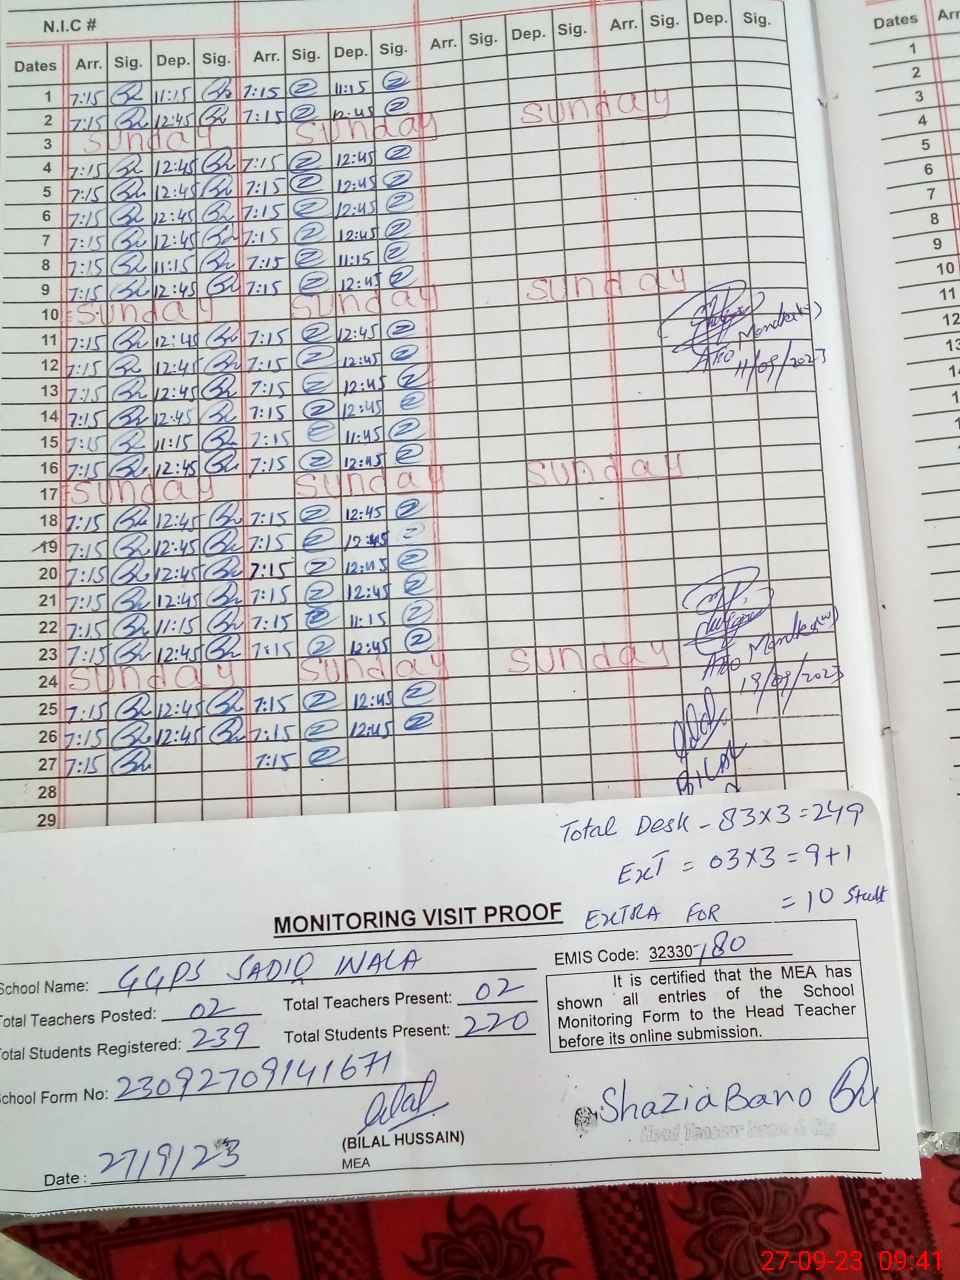 N.I.C #
Dates Arr. Sig. Dep. Sig. Arr. Sig. Dep. Sig. Arr. Sig. Dep. Sig. Arr. Sig. Dep. Sig.
1 7:15 11:15 7:15 11:15
2 7:15 12:45 7:15 12:45
3 Sunday Sunday Sunday
4 7:15 12:45 7:15 12:45
5 7:15 12:45 7:15 12:45
6 7:15 12:45 7:15 12:45
7 7:15 12:45 7:15 12:45
8 7:15 11:15 7:15 11:15
9 7:15 12:45 7:15 12:45
10 Sunday Sunday Sunday
11 7:15 12:45 7:15 12:45
12 7:15 12:45 7:15 12:45
13 7:15 12:45 7:15 12:45
14 7:15 12:45 7:15 12:45
15 7:15 11:15 7:15 11:45
16 7:15 12:45 7:15 12:45
17 Sunday Sunday Sunday
18 7:15 12:45 7:15 12:45
19 7:15 12:45 7:15 12:45
20 7:15 12:45 7:15 12:45
21 7:15 12:45 7:15 12:45
22 7:15 11:15 7:15 11:15
23 7:15 12:45 7:15 12:45
24 Sunday Sunday Sunday
25 7:15 12:45 7:15 12:45
26 7:15 12:45 7:15 12:45
27 7:15 7:15
28
29
11/09/2023
19/09/2023
BILAL
Dates Arr
1
2
3
4
5
6
7
8
9
10
11
12
Total Desk - 83x3=249
ExT = 03x3 = 9+1
EXTRA FOR = 10
MONITORING VISIT PROOF
School Name: GGPS SADIQ WALA
EMIS Code: 32330-180
Total Teachers Posted: 02 Total Teachers Present: 02
Total Students Registered: 239 Total Students Present: 220
It is certified that the MEA has
shown all entries of the School
Monitoring Form to the Head Teacher
before its online submission.
School Form No: 23092709141671
Bilal
(BILAL HUSSAIN)
MEA
Shazia Bano
Head Teacher Name & Sig
Date: 27/9/23
27-09-23 09:41